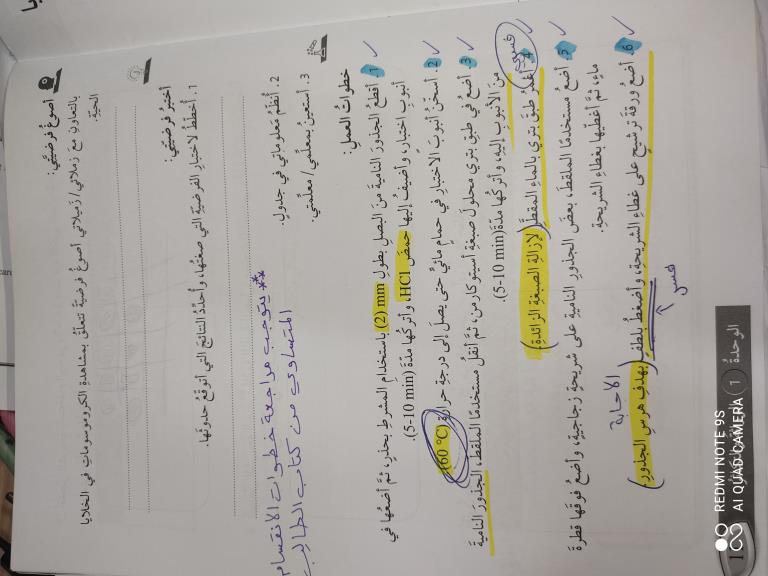 أصوغُ فرضيّتي:
بالتعاونِ مع زملائي/ زميلاتي أصوغُ فرضيةً تتعلّقُ بمشاهدةِ الكروموسوماتِ في الخلايا
الحيّةِ.
أختبرُ فرضيّتي:
1. أخططُ لاختبارِ الفرضيةِ التي صغتُها، وأحدّدُ النتائجَ التي أتوقعُ حدوثَها.
2. أنظّمُ معلوماتي في جدولٍ.
3. أستعينُ بمعلّمي/ معلّمتي.
** يتوجب مراجعة خطوات الانقسام
المتساوي من كتاب الطالب
خطواتُ العملِ:
1. أقطعُ الجذورَ الناميةَ منَ البصلِ بطولِ (2 mm) باستخدامِ المشرطِ بحذرٍ، ثمَّ أضعُها في
أنبوبِ اختبارٍ، وأضيفُ إليها حمضَ HCl، وأتركُها مدّةَ (5-10 min).
2. أسخّنُ أنبوبَ الاختبارِ في حمامٍ مائيٍّ حتى يصلَ إلى درجةِ حرارةِ (60 °C)
3. أضعُ في طبقِ بتري محلولَ صبغةِ أسيتوكارمن، ثمَّ أنقلُ مستخدمًا الملقطَ، الجذورَ الناميةَ
منَ الأنبوبِ إليهِ، وأتركُها مدّةَ (5-10 min).
فسري
4. أغمرُ طبقَ بتري بالماءِ المقطَّرِ (لإزالةِ الصبغةِ الزائدةِ)
5. أضعُ مستخدمًا الملقطَ، بعضَ الجذورِ الناميةِ على شريحةٍ زجاجيةٍ، وأضعُ فوقَها قطرةَ
ماءٍ، ثمَّ أغطّيها بغطاءِ الشريحةِ.
6. أضعُ ورقةَ ترشيحٍ على غطاءِ الشريحةِ، وأضغطُ بلطفٍ (بهدفِ هرسِ الجذورِ)
فسر
الاجابة
الوحدةُ 1
REDMI NOTE 9S
AI QUAD CAMERA